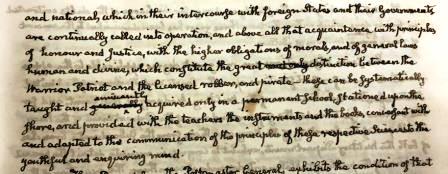 and national, which in their intercourse with foreign States and their Governments
are continually called into operation, and above all that acquaintance with principles
of honour and justice, with the higher obligations of morals, and of general laws
human and divine, which constitute the great distinction between the
Warrior Patriot and the licensed robber, and pirate - these can be systematically
taught and eminently acquired only in a permanent School, Stationed upon the
Shore, and provided with the teachers the instruments and the books, conversant with
and adapted to the communication of the principles of these respective Sciences to the
youthful and enquiring mind.
Postmaster General, exhibits the condition of that